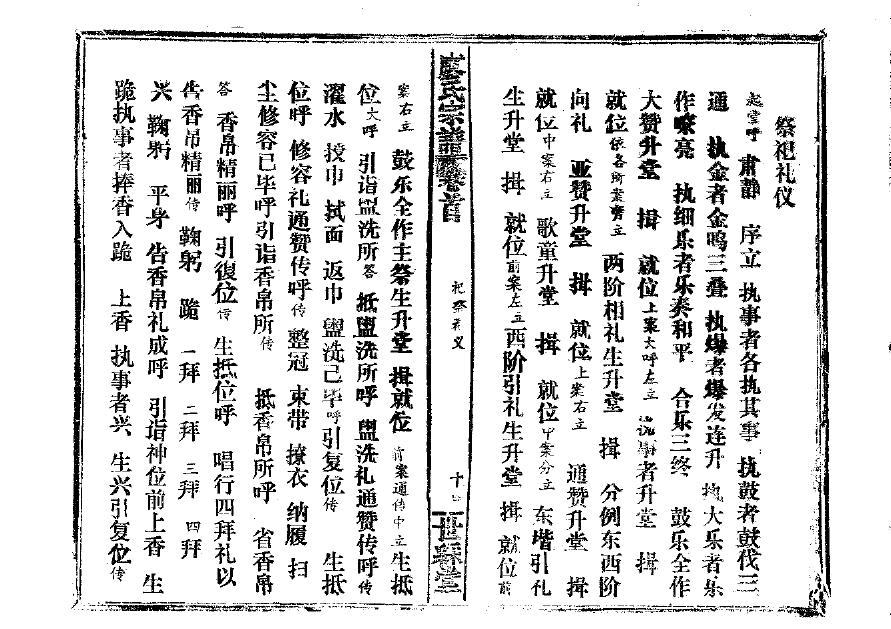 祭祀礼仪
起堂呼 肃静 序立 执事者各执其事 执鼓者鼓伐三
通 执金者金鸣三叠 执爆者爆发连升 执大乐者乐
作嘹亮 执细乐者乐奏和平 合乐三终 鼓乐全作
大赞升堂 揖 就位上案大呼左立 事者升堂 揖
就位依各所案旁立 两阶相礼生升堂 揖 分例东西阶
向礼 亚赞升堂 揖 就位上案右立 通赞升堂 揖
就位中案右立 歌童升堂 揖 就位中案分立 东堦引礼
生升堂 揖 就位前案左立 西阶引礼生升堂 揖 就位前
廖氏宗谱 卷首
祀祭
十
世彩堂
案右立 鼓乐全作主祭生升堂 揖就位 前案通传中立 生抵
位大呼 引诣盥洗所答 抵盥洗所呼 盥洗礼通赞传呼传
濯水 授巾 拭面 返巾 盥洗已毕呼引复位传 生抵
位呼 修容礼通赞传呼传 整冠 束带 撩衣 纳履 扫
尘修容已毕呼引诣香帛所传 抵香帛所呼 省香帛
答 香帛精丽呼 引復位传 生抵位呼 唱行四拜礼以
告香帛精丽传 鞠躬 跪 一拜 二拜 三拜 四拜
兴 鞠躬 平身 告香帛礼成呼 引诣神位前上香 生
跪执事者捧香入跪 上香 执事者兴 生兴引复位传